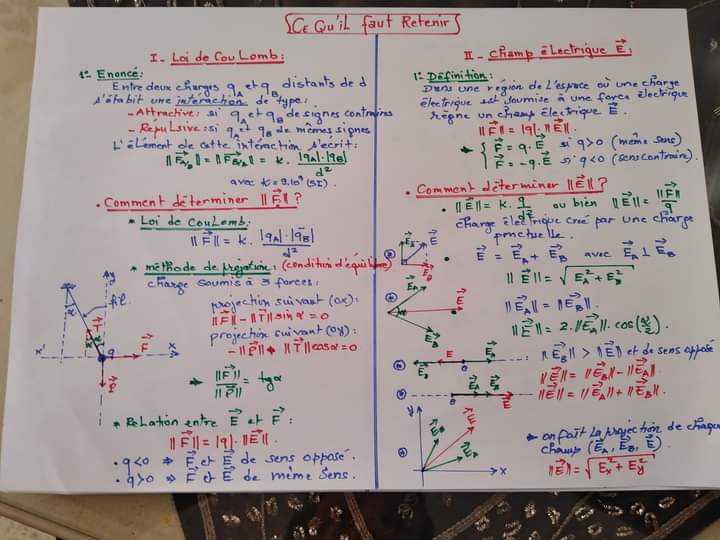 Ce Qu'il faut Retenir
I - Loi de CouLomb:
1- Enoncé:
Entre deux charges qA et qB distants de d
s'établit une interaction de type:
- Attractive: si qA et qB de signes contraires
- Répulsive: si qA et qB de mêmes signes
L'élement de cette intéraction s'ecrit:
||F⃗A/B|| = ||F⃗B/A|| = k. |qA|.|qB| / d²
avec k = 9.10⁹ (SI).
• Comment déterminer ||F⃗||?
* Loi de CouLomb:
||F⃗|| = k. |qA|.|qB| / d²
* méthode de projection: (condition d'équilibre)
charge soumis à 3 forces:
projection suivant (Ox):
||F⃗|| - ||T⃗|| sin α = 0
projection suivant (Oy):
- ||P⃗|| + ||T⃗|| cos α = 0
⇒ ||F⃗|| / ||P⃗|| = tg α
y
fil
α
T⃗
α
x'
q
F⃗
x
P⃗
* Relation entre E⃗ et F⃗:
||F⃗|| = |q|.||E⃗||.
• q<0 ⇒ F⃗ et E⃗ de sens opposé.
• q>0 ⇒ F⃗ et E⃗ de même sens.
II - champ électrique E⃗:
1- Définition:
Dans une région de l'espace où une charge
électrique est soumise à une force électrique
règne un champ électrique E⃗.
||F⃗|| = |q|.||E⃗||.
⇒ { F⃗ = q.E⃗ si q>0 (même sens)
F⃗ = -q.E⃗ si q<0 (sens contraire).
• Comment déterminer ||E⃗||?
• ||E⃗|| = k. q / d² ou bien ||E⃗|| = ||F⃗|| / q
charge électrique creé par une charge
ponctuelle.
E⃗A E⃗
E⃗B
• E⃗ = E⃗A + E⃗B avec E⃗A ⊥ E⃗B
||E⃗|| = √(EA² + EB²)
E⃗A
α E⃗
E⃗B
||E⃗A|| = ||E⃗B||.
||E⃗|| = 2.||E⃗A||.cos(α/2).
E⃗B E⃗ O E⃗A
||E⃗B|| > ||E⃗|| et de sens opposé
||E⃗|| = ||E⃗B|| - ||E⃗A||.
O E⃗A E⃗B E⃗
||E⃗|| = ||E⃗A|| + ||E⃗B||.
y
E⃗B E⃗
E⃗A
x
⇒ on fait la projection de chaque
champ (E⃗A, E⃗B, E⃗).
||E⃗|| = √(Ex² + Ey²)